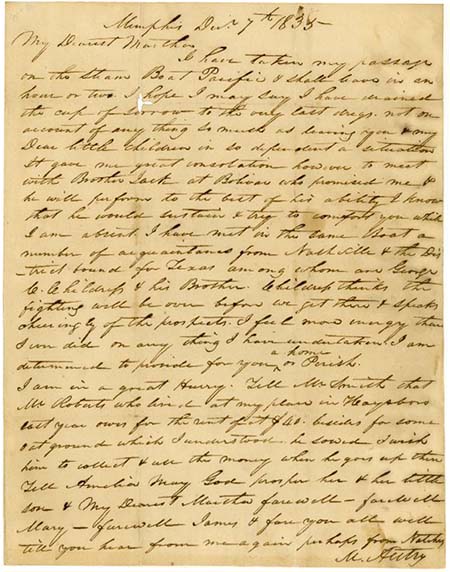 Memphis Decr 7th 1835
My Dearest Martha
I have taken my passage
on the Steam Boat Pacific & shall leave in an
hour or two. I hope I may say I have drained
the cup of sorrow to the very last dregs. not on
account of any thing so much as leaving you & my
Dear little children in so dependent a situation
It gave me great consolation however to meet
with Brother Jack at Bolivar who promised me &
he will perform to the best of his ability I know
that he would sustain & try to comfort you while
I am absent. I have met in the same Boat a
number of acquaintances from Nashville & the Dis
trict bound for Texas among whom are George
C. Childress & his Brother. Childress thinks the
fighting will be over before we get there & speaks
cheeringly of the prospects. I feel more energy than
I ever did on any thing I have undertaken. I am
determined to provide for you a home or Perish.
I am in a great Hurry. Tell Mr Smith that
Mr Roberts who lived at my place in Haysboro
last year owes for the rent of it $40. besides for some
oat ground which I understood he sowed I wish
him to collect & use the money when he goes up then
Tell Amelia May God prosper her & her little
son & My Dearest Martha farewell - farewell
Mary - farewell James & fare you all well
till you hear from me again perhaps from Natchez
M. Autry